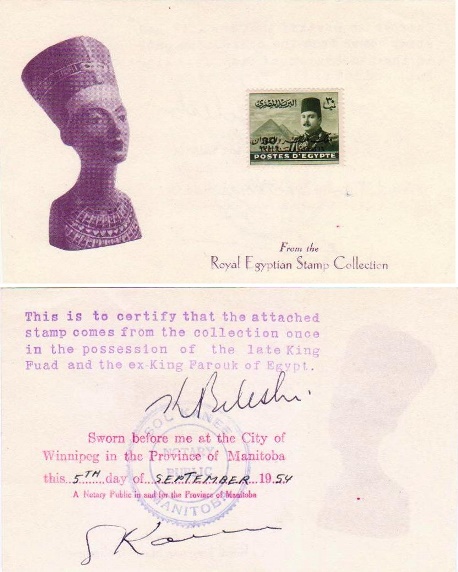 البريد المصرى ٣٠
30
POSTES D'EGYPTE
From the
Royal Egyptian Stamp Collection
This is to certify that the attached
stamp comes from the collection once
in the possession of the late King
Fuad and the ex-King Parouk of Egypt.
Sworn before me at the City of
Winnipeg in the Province of Manitoba
this 5TH day of SEPTEMBER 1954
A Notary Public in and for the Province of Manitoba
NOTARY
PUBLIC
MANITOBA